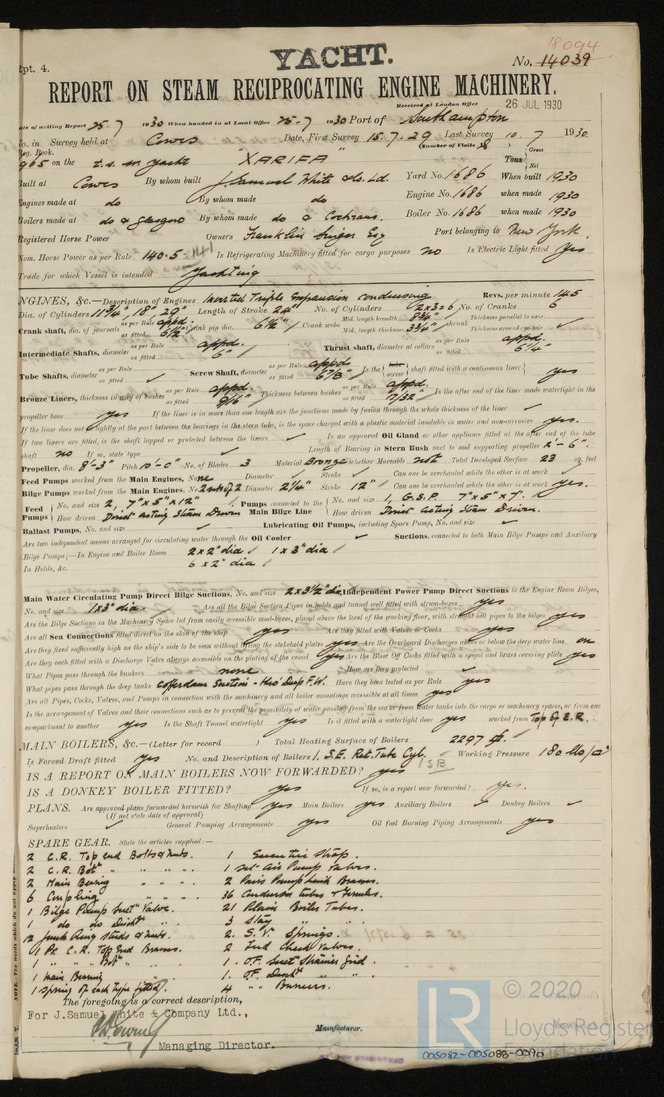 YACHT.
Rpt. 4.
18094
No. 14039
REPORT ON STEAM RECIPROCATING ENGINE MACHINERY.
Received at London Office 26 JUL 1930
Date of writing Report 25·7 1930 When handed in at Local Office 25·7 1930 Port of Southampton
No. in Survey held at Cowes Date, First Survey 15·7·29 Last Survey 10·7 1930
Reg. Book. (Number of Visits
965 on the yacht "XARIFA" Tons Gross Net
Built at Cowes By whom built J. Samuel White & Co. Ld. Yard No. 1686 When built 1930
Engines made at do By whom made do Engine No. 1686 when made 1930
Boilers made at do & Glasgow By whom made do & Cochrans. Boiler No. 1686 when made 1930
Registered Horse Power Owners Franklin Singer Esq Port belonging to New York.
Nom. Horse Power as per Rule 140·5 141 Is Refrigerating Machinery fitted for cargo purposes no Is Electric Light fitted Yes
Trade for which Vessel is intended Yachting
ENGINES, &c.—Description of Engines Inverted Triple Expansion condensing Revs. per minute 145
Dia. of Cylinders 11¾", 18", 29" Length of Stroke 24" No. of Cylinders 2x3=6 No. of Cranks 6
Crank shaft, dia. of journals as per Rule appd. as fitted 6½" Crank pin dia. 6½" Crank webs Mid. length breadth Mid. length thickness 3¾" shrunk Thickness parallel to axis Thickness around eye-hole
Intermediate Shafts, diameter as per Rule appd. as fitted 6" Thrust shaft, diameter at collars as per Rule appd. as fitted 6¼"
Tube Shafts, diameter as per Rule as fitted Screw Shaft, diameter as per Rule appd. as fitted 6⅞" Is the screw shaft fitted with a continuous liner yes
Bronze Liners, thickness in way of bushes as per Rule appd. as fitted Thickness between bushes as per Rule appd. as fitted Is the after end of the liner made watertight in the
propeller boss yes If the liner is in more than one length are the junctions made by fusion through the whole thickness of the liner ✓
If the liner does not fit tightly at the part between the bearings in the stern tube, is the space charged with a plastic material insoluble in water and non-corrosive yes.
If two liners are fitted, is the shaft lapped or protected between the liners ✓ Is an approved Oil Gland or other appliance fitted at the after end of the tube
shaft no If so, state type ✓ Length of Bearing in Stern Bush next to and supporting propeller 2'-6".
Propeller, dia. 8'-3" Pitch 10'-0" No. of Blades 3 Material Bronze whether Moveable not. Total Developed Surface 23 sq. feet
Feed Pumps worked from the Main Engines, No. none Diameter ✓ Stroke ✓ Can one be overhauled while the other is at work ✓
Bilge Pumps worked from the Main Engines, No. 2 Diameter 2¼" Stroke 12" Can one be overhauled while the other is at work yes.
Feed Pumps No. and size 2, 7"x5"x12" How driven Direct acting Steam Driven Pumps connected to the Main Bilge Line No. and size 1, G.S.P. 7"x5"x7". How driven Direct acting Steam Driven.
Ballast Pumps, No. and size ✓ Lubricating Oil Pumps, including Spare Pump, No. and size ✓
Are two independent means arranged for circulating water through the Oil Cooler ✓ Suctions, connected to both Main Bilge Pumps and Auxiliary
Bilge Pumps;—In Engine and Boiler Room 2x2" dia 1x3" dia
In Holds, &c. 6x2" dia
Main Water Circulating Pump Direct Bilge Suctions, No. and size 2x3½" dia Independent Power Pump Direct Suctions to the Engine Room Bilges,
No. and size 1x3" dia. Are all the Bilge Suction Pipes in holds and tunnel well fitted with strum-boxes yes
Are the Bilge Suctions in the Machinery Space led from easily accessible mud-boxes, placed above the level of the working floor, with straight tail pipes to the bilges yes
Are all Sea Connections fitted direct on the skin of the ship yes Are they fitted with Valves or Cocks yes
Are they fixed sufficiently high on the ship's side to be seen without lifting the stokehold plates yes Are the Overboard Discharges above or below the deep water line
Are they each fitted with a Discharge Valve always accessible on the plating of the vessel yes Are the Blow Off Cocks fitted with a spigot and brass covering plate yes
What Pipes pass through the bunkers none How are they protected
What pipes pass through the deep tanks Have they been tested as per Rule yes
Are all Pipes, Cocks, Valves, and Pumps in connection with the machinery and all boiler mountings accessible at all times yes
Is the arrangement of Valves and their connections such as to prevent the possibility of water passing from the sea or from water tanks into the cargo or machinery spaces, or from one
compartment to another yes Is the Shaft Tunnel watertight yes Is it fitted with a watertight door yes worked from Top of E.R.
MAIN BOILERS, &c.—(Letter for record ) Total Heating Surface of Boilers 2297
Is Forced Draft fitted yes No. and Description of Boilers 1. S.E. Ret. Tube Cyl. 1SB Working Pressure 180 lbs/□"
IS A REPORT ON MAIN BOILERS NOW FORWARDED? yes
IS A DONKEY BOILER FITTED? yes If so, is a report now forwarded? yes.
PLANS. Are approved plans forwarded herewith for Shafting yes Main Boilers yes Auxiliary Boilers ✓ Donkey Boilers ✓
(If not state date of approval)
Superheaters ✓ General Pumping Arrangements yes Oil fuel Burning Piping Arrangements yes
SPARE GEAR. State the articles supplied:—
2 C.R. Top end Bolts & nuts. 1 Eccentric Strap.
2 C.R. Bott " " " 1 set Air Pump Valves.
2 Main Bearing " " " 2 Pairs Pump Link Brasses.
6 Coupling " " " 36 Condenser tubes & ferrules.
1 Bilge Pump Suctn Valve. 21 Plain Boiler Tubes.
1 do do Discht " 3 Stay " "
12 Junk Ring Studs & nuts. 2 S.V. Springs.
1 Pr. C.R. Top End Brasses. 2 Feed Check Valves.
1 " " Bott " " 1 O.F. Suct Strainer Grid.
1 Main Bearing " 1 O.F. Discht " "
1 Spring of each type fitted. 4 " Burners.
The foregoing is a correct description,
For J.Samuel White & Company Ltd.,
Manufacturer.
Managing Director.
© 2020
LR
Lloyd's Register
Foundation
005082-005088-0090